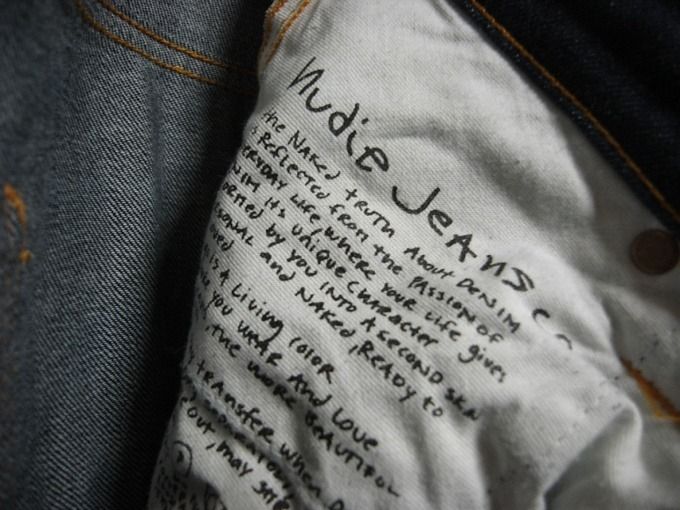 nudie Jeans co
the NAKed truth About DENIM
is Reflected from the PASSION of
EVERYDAY Life, where YOUR Life gives
DENIM its UNIQUE CHARACTER
FORMED by YOU INTO A SECOND SKIN
and NAKED, READY to
is A LIVING COLOR
YOU WEAR AND LOVE
, the MORE BEAUTIFUL
TRANSFER when
out, may